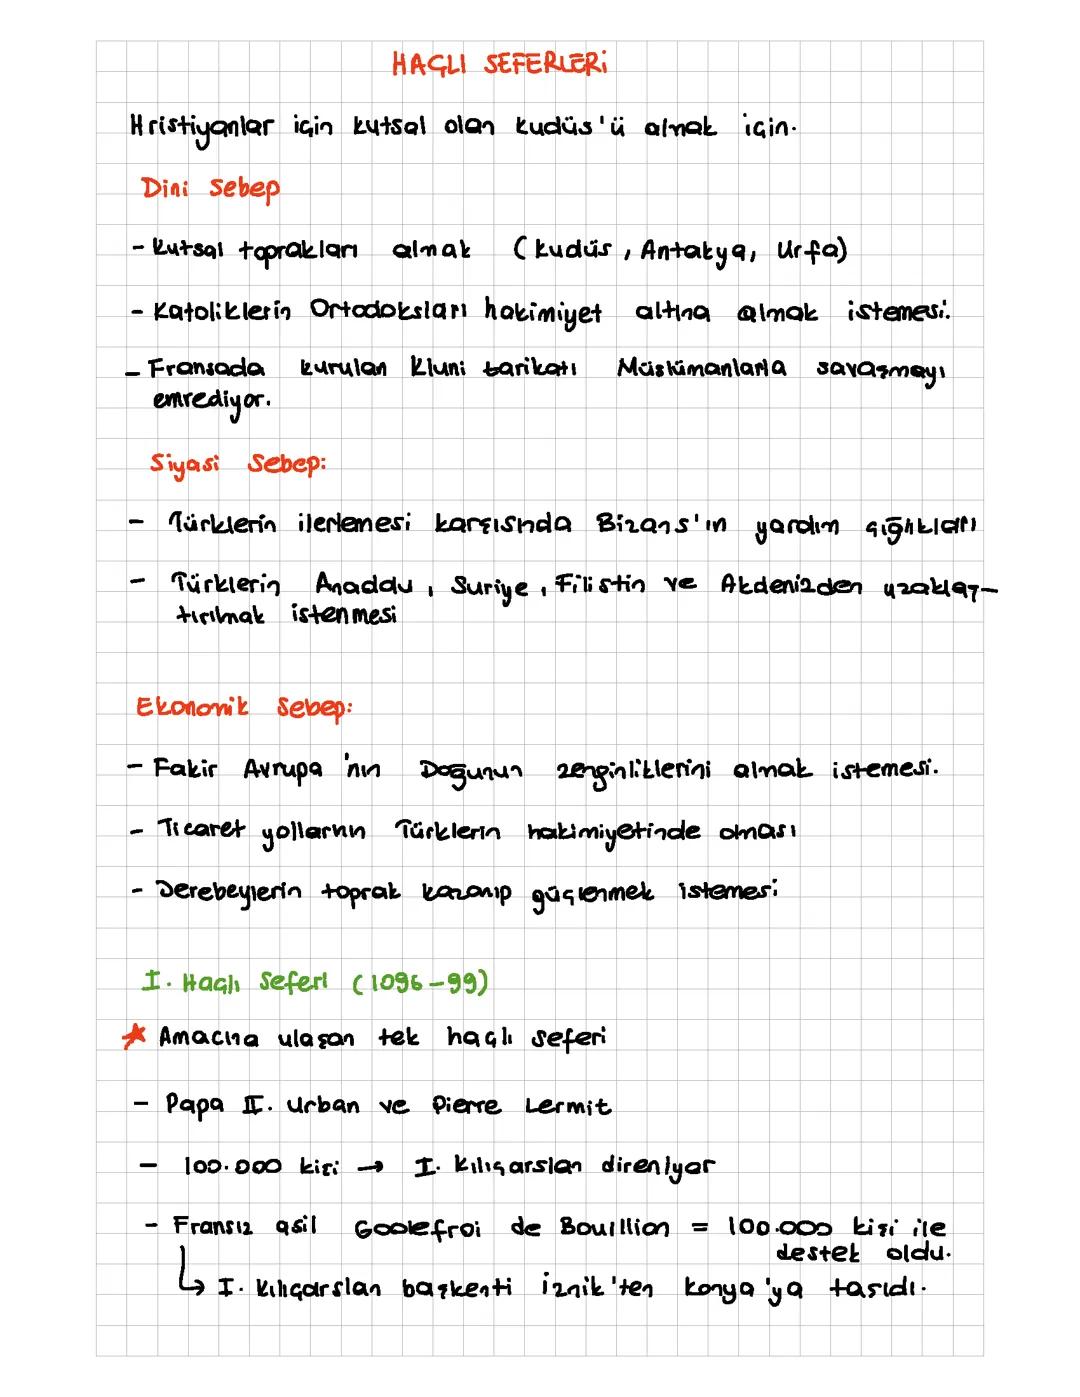 HAÇLI SEFERLERİ
Hristiyanlar için kutsal olan kudüs'ü almak için.
Dini Sebep
- Kutsal toprakları almak (kudüs, Antakya, Urfa)
- Katoliklerin Ortodoksları hakimiyet altına almak istemesi.
- Fransada kurulan Kluni tarikatı Müslümanlarla savaşmayı
emrediyor.
Siyasi Sebep:
- Türklerin ilerlemesi karşısında Bizans'ın yardım çığlıkları
- Türklerin Anadolu, Suriye, Filistin ve Akdenizden uzaklaş-
tırılmak istenmesi
Ekonomik Sebep:
- Fakir Avrupa'nın Doğunun zenginliklerini almak istemesi.
- Ticaret yollarının Türklerin hakimiyetinde olması
- Derebeylerin toprak kazanıp güçlenmek istemesi
I. Haçlı Seferi (1096-99)
★ Amacına ulaşan tek haçlı seferi
- Papa II. Urban ve Pierre Lermit
- 100.000 kişi → I. Kılıçarslan direniyor
- Fransız asil Godefroi de Bouillion = 100.000 kişi ile
destek oldu.
↳ I. Kılıçarslan başkenti iznik'ten Konya'ya taşıdı.